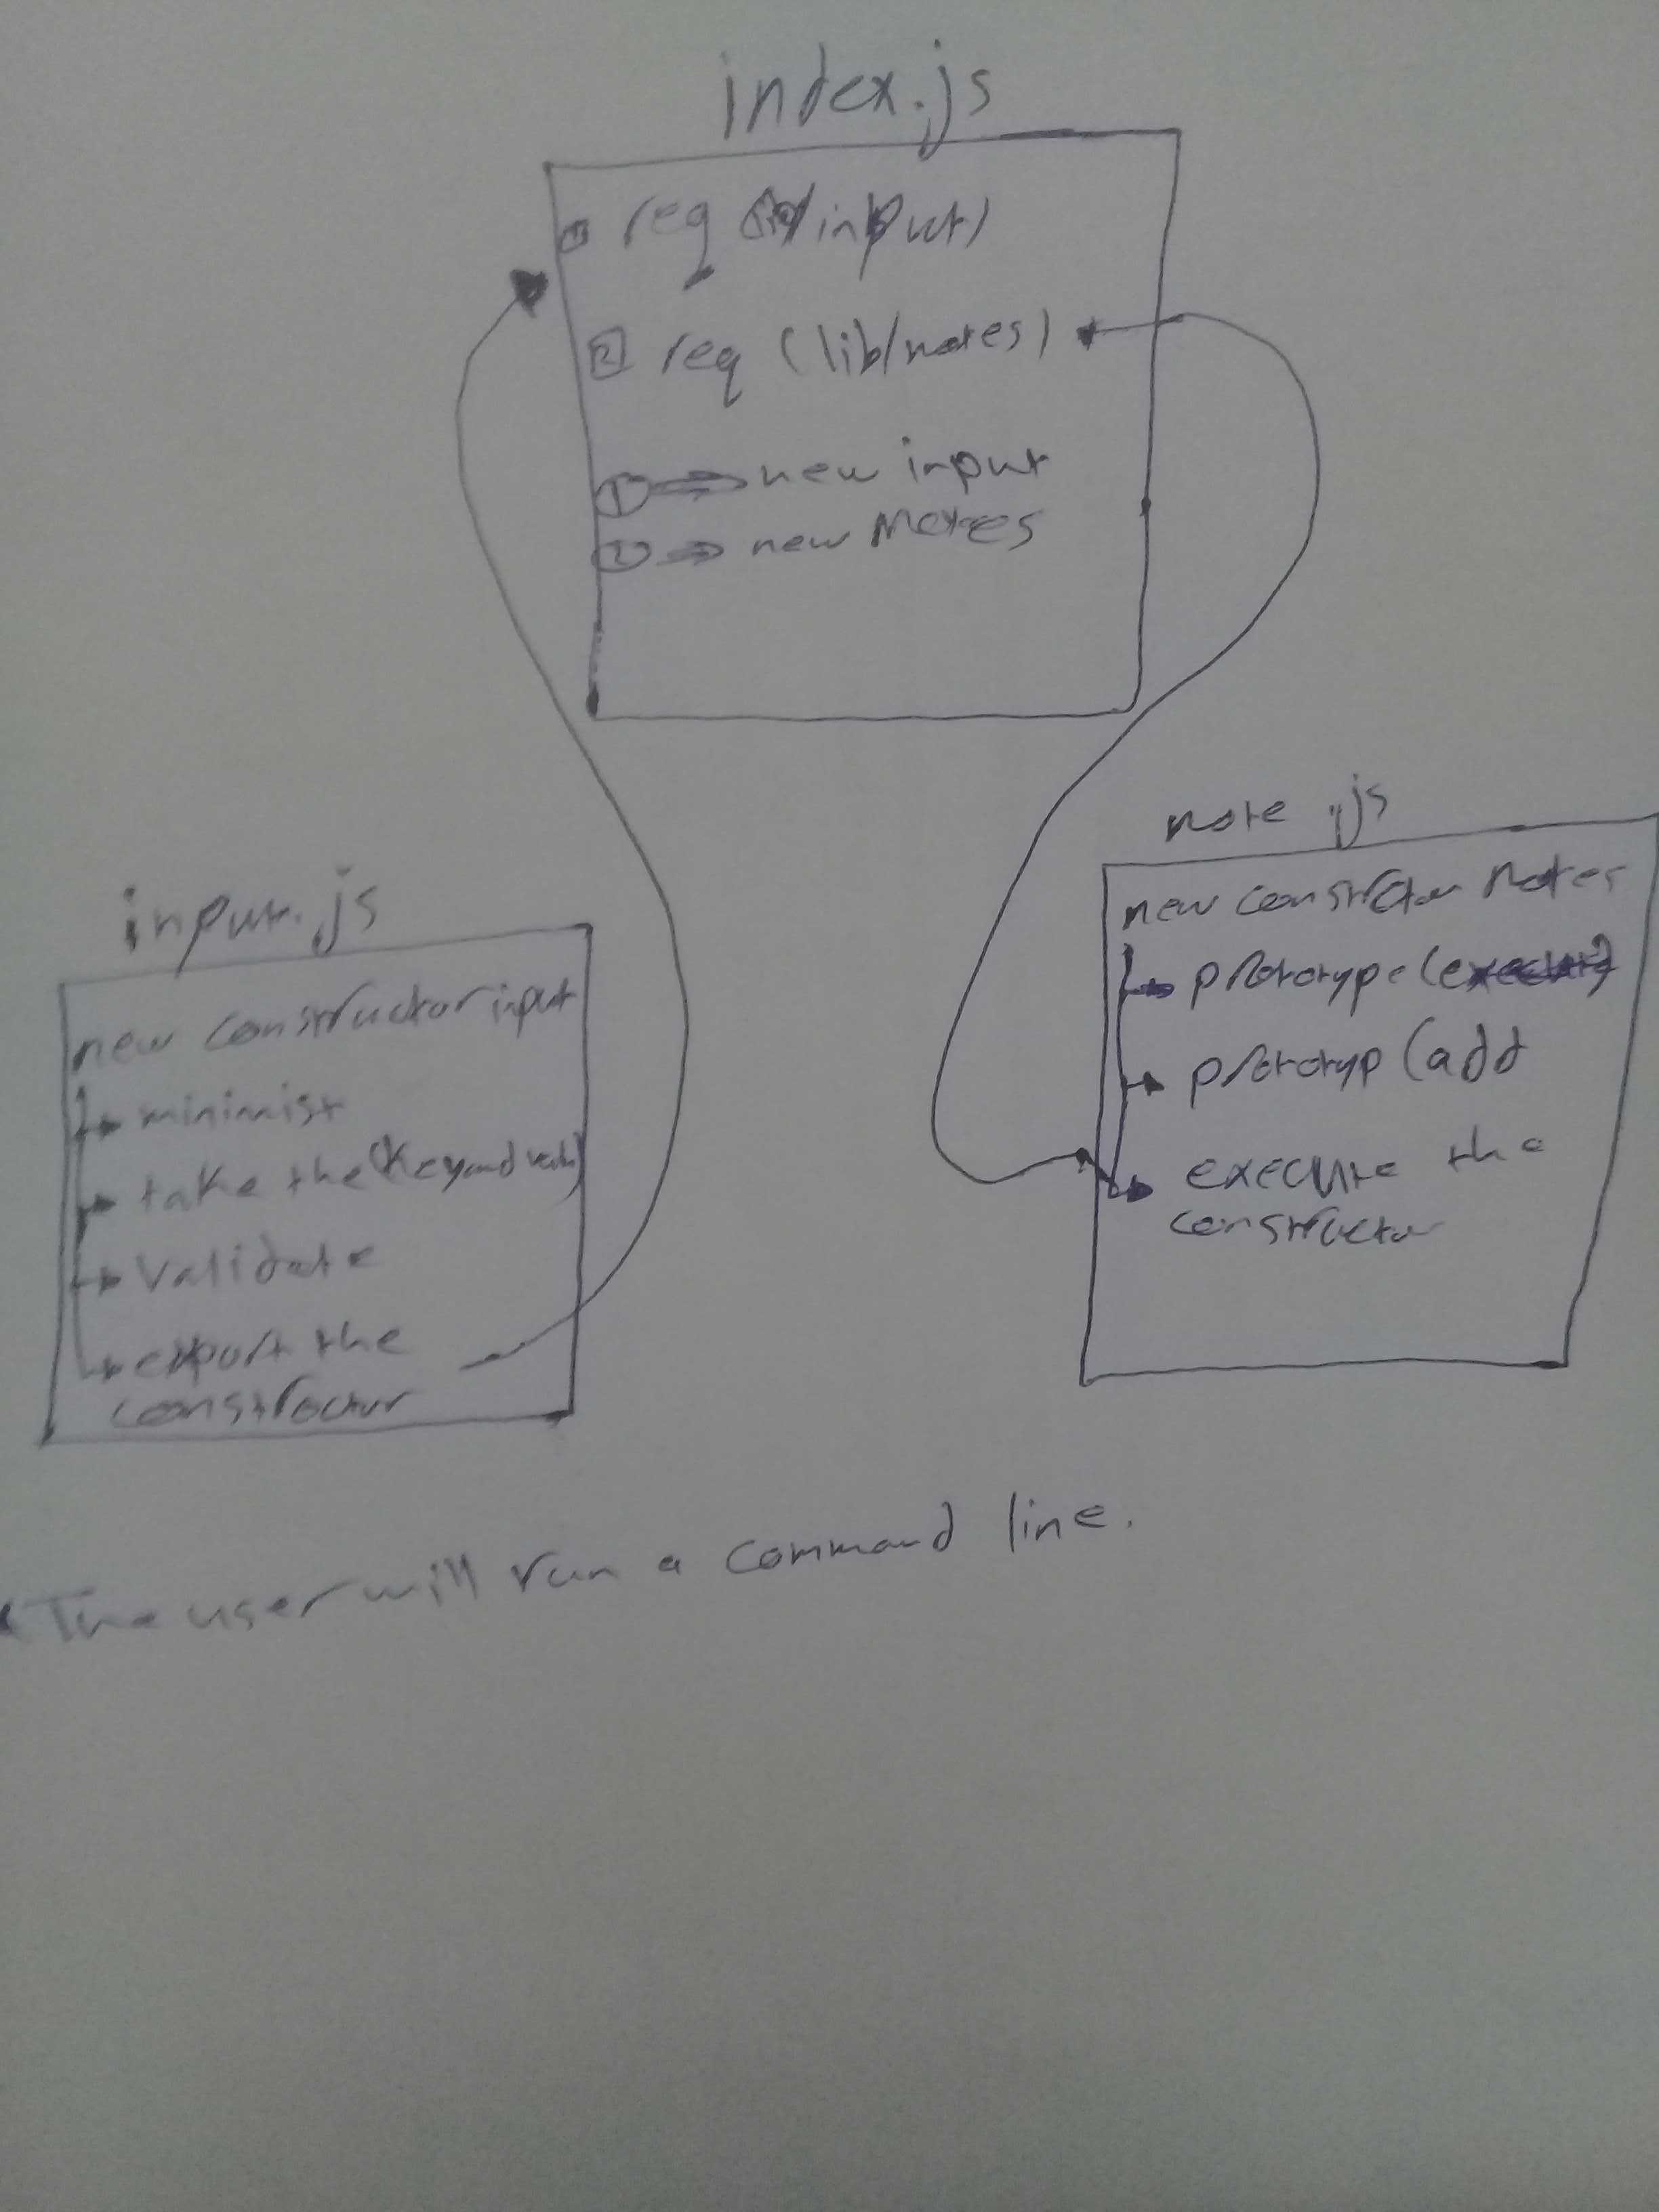 index.js
1 req (lib/input)
2 req (lib/notes)
1 new input
2 new Notes
input.js
new constructor input
minimist
take the (key and value)
validate
export the
constructor
note.js
new constructor Notes
prototype (execute)
prototyp (add
execute the
constructor
The user will run a command line.